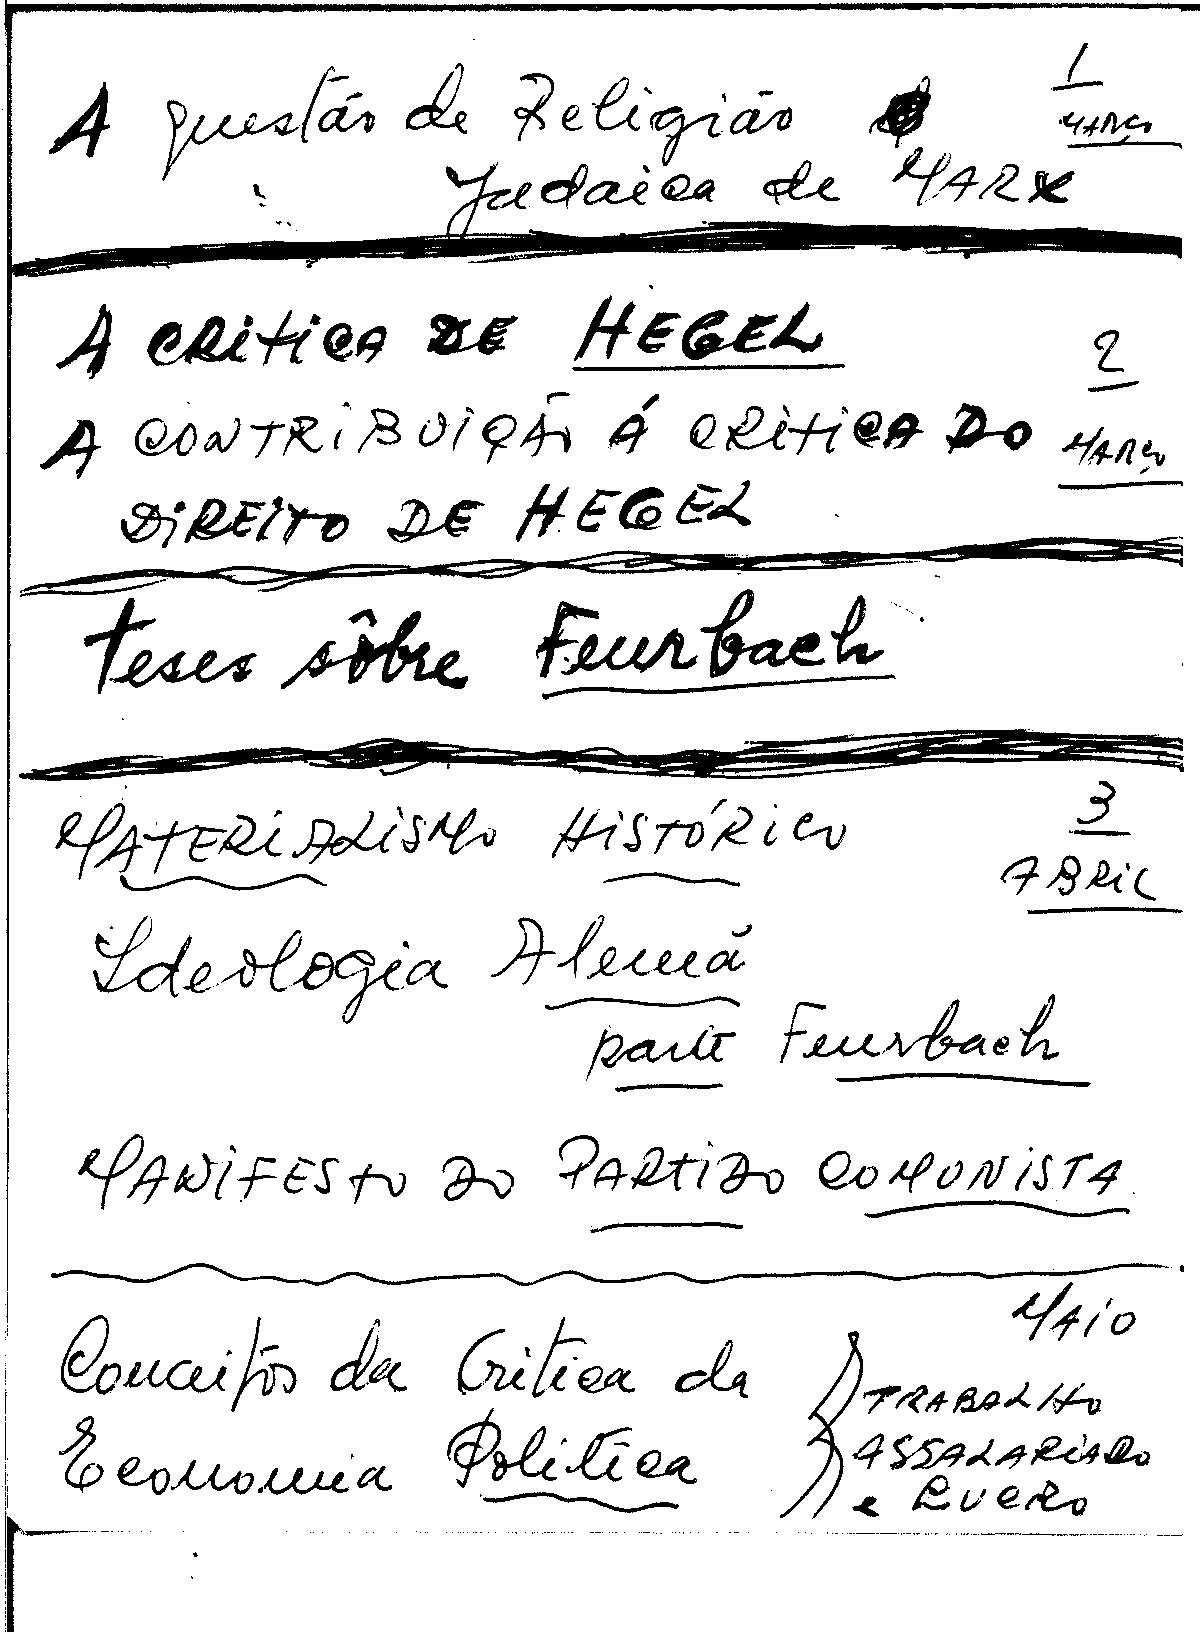 A questão de Religião
1
MARÇO
Judaica de MARX
A CRITICA DE HEGEL
2
MARÇO
A CONTRIBUIÇÃO Á CRITICA DO
DIREITO DE HEGEL
Teses sôbre Feurbach
MATERIALISMO HISTÓRICO
3
ABRIL
Ideologia Alemã
parte Feurbach
MANIFESTO DO PARTIDO COMUNISTA
MAIO
Conceitos da Critica da
Economia Politica
TRABALHO
ASSALARIADO
e LUCRO